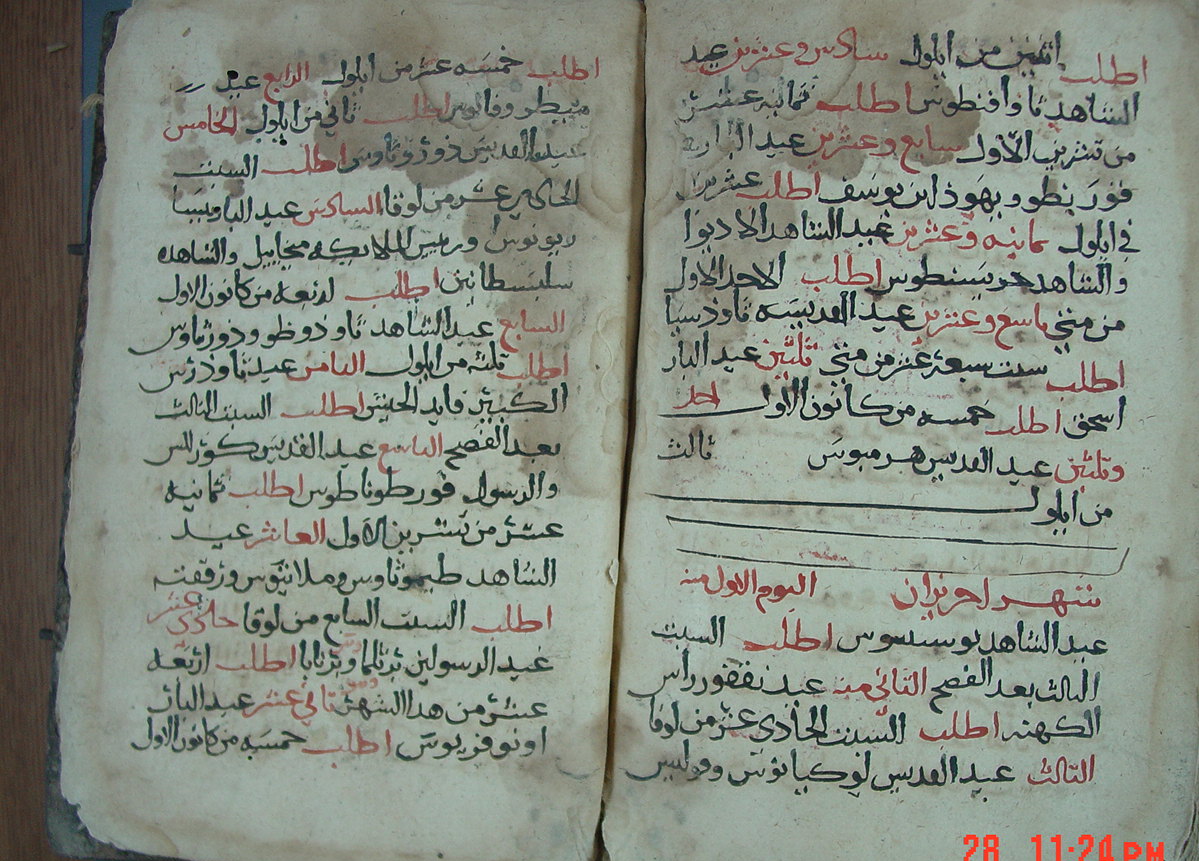 اطلب اثنين من ايلول سادس وعشرين عيد
الشاهد ثاوافنطوس اطلب ثمانية عشر
من تشرين الاول سابع وعشرين عيد البارة
فورنطو ويهوذا بن يوسف اطلب عشرين
في ايلول ثمانيه وعشرين عيد الشاهد الاديوا
والشاهد خريسنطوس اطلب الاحد الاول
من متي تاسع وعشرين عيد القديسه ثاوذسيا
اطلب سبت سبعة عشر من متي ثلثين عيد البار
اسحق اطلب خمسه من كانون الاول احد
وثلثين عيد القديس هرميوس ثالث
من ايلول
شهر احزيران اليوم الاول منه
عيد الشاهد يوستينوس اطلب السبت
الثالث بعد الفصح الثاني منه عيد نقفور راس
الكهنه اطلب السبت الحادي عشر من لوقا
الثالث عيد القديس لوكيانوس وفوليس
اطلب خمسه عشر من ايلول الرابع عيد
اطلب ثاني من ايلول الخامس
عيد القديس ذوروثاوس اطلب السبت
الحادي عشر من لوقا السادس عيد البار
وريس الملايكه ميخاييل والشاهده
اطلب اربعه من كانون الاول
السابع عيد الشاهد ثاوذوطو وذورثاوس
اطلب ثلثه من ايلول الثامن عيد ثاوذرس
الكبير قايد الجيش اطلب السبت الثالث
بعد الفصح التاسع عيد القديس كورلس
والرسول فورطوناطوس اطلب ثمانيه
عشر من تشرين الاول العاشر عيد
الشاهد طيموثاوس وملانيوس ورفقته
اطلب السبت السابع من لوقا حادي عشر
عيد الرسولين برثلما وبرنابا اطلب اربعه
عشر من هدا الشهر ثاني عشر عيد البار
اونوفريوس اطلب خمسه من كانون الاول
28 11:24 PM